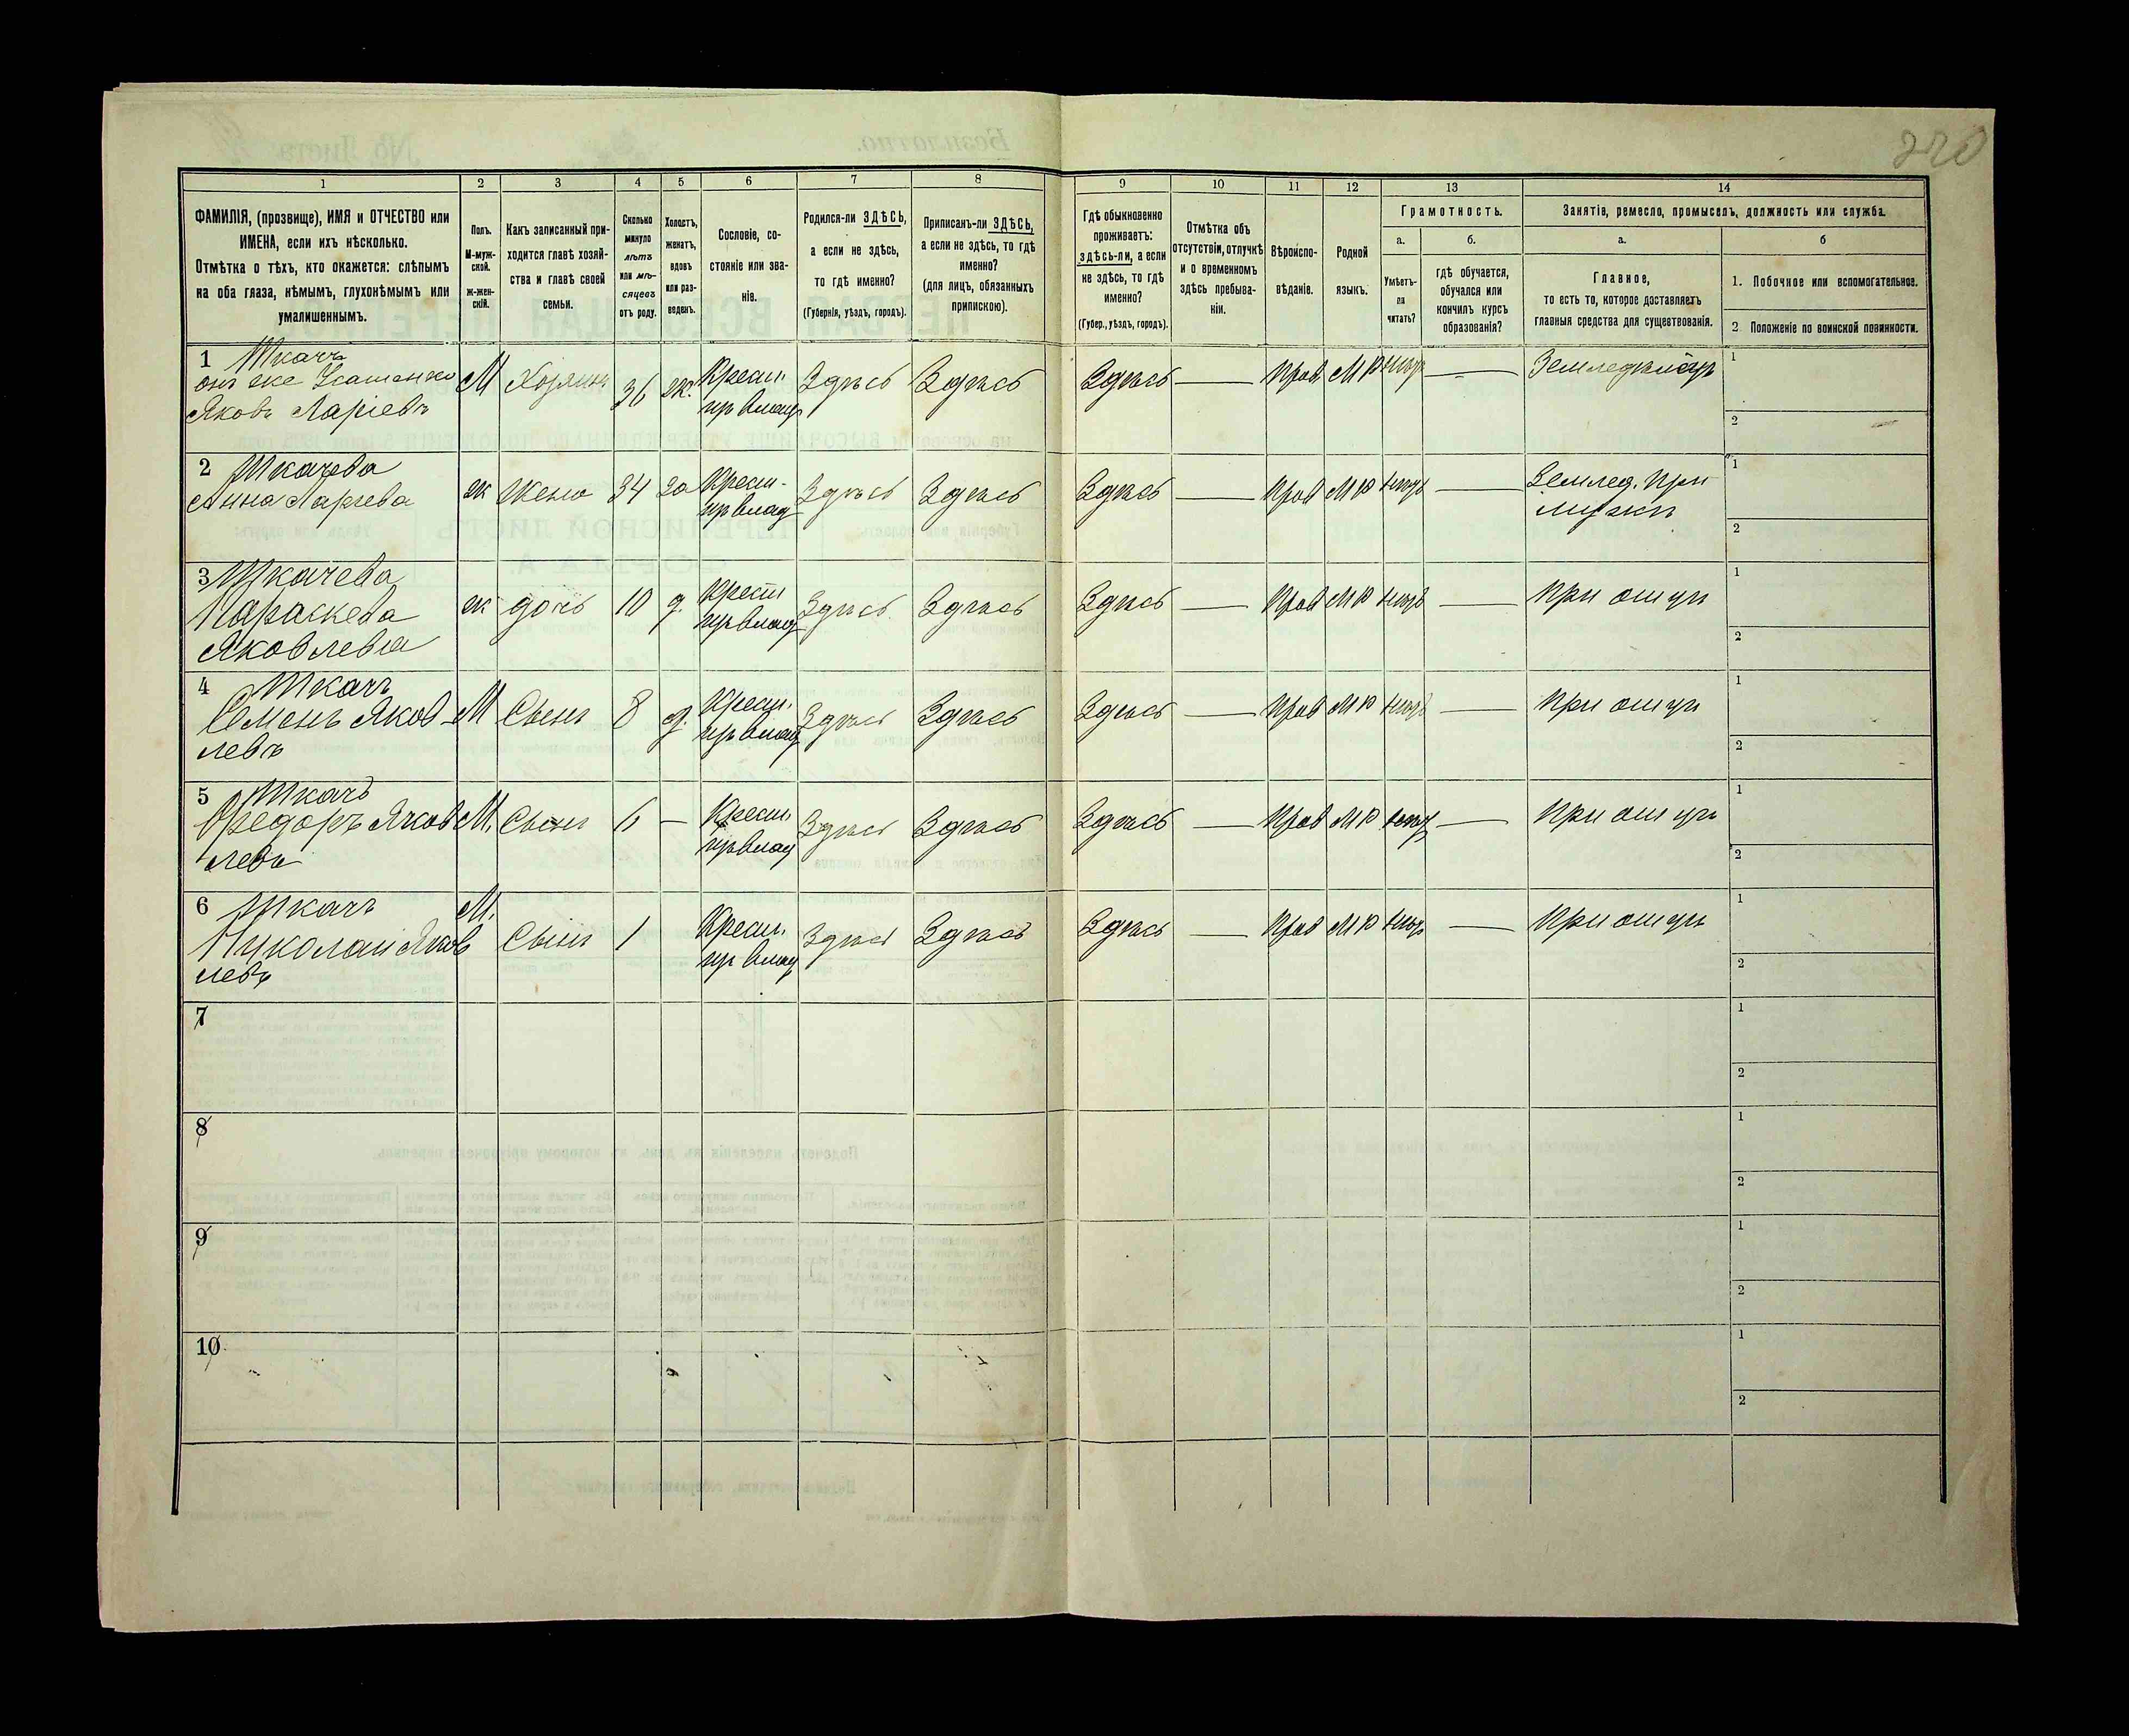 220
1 2 3 4 5 6 7 8 9 10 11 12 13 14
ФАМИЛІЯ, (прозвище), ИМЯ и ОТЧЕСТВО или
ИМЕНА, если ихъ нѣсколько.
Отмѣтка о тѣхъ, кто окажется: слѣпымъ
на оба глаза, нѣмымъ, глухонѣмымъ или
умалишеннымъ.
Полъ.
М-муж-
ской.
ж-жен-
скій.
Какъ записанный при-
ходится главѣ хозяй-
ства и главѣ своей
семьи.
Сколько
минуло
лѣтъ
или мѣ-
сяцевъ
отъ роду.
Холостъ,
женатъ,
вдовъ
или раз-
веденъ.
Сословіе, со-
стояніе или зва-
ніе.
Родился-ли ЗДѢСЬ,
а если не здѣсь,
то гдѣ именно?
(Губернія, уѣздъ, городъ).
Приписанъ-ли ЗДѢСЬ,
а если не здѣсь, то гдѣ
именно?
(для лицъ, обязанныхъ
припискою).
Гдѣ обыкновенно
проживаетъ:
здѣсь-ли, а если
не здѣсь, то гдѣ
именно?
(Губер., уѣздъ, городъ).
Отмѣтка объ
отсутствіи, отлучкѣ
и о временномъ
здѣсь пребыва-
ніи.
Вѣроиспо-
вѣданіе.
Родной
языкъ.
Грамотность.
а.
Умѣетъ-
ли
читать?
б.
гдѣ обучается,
обучался или
кончилъ курсъ
образованія?
Занятіе, ремесло, промыселъ, должность или служба.
а.
Главное,
то есть то, которое доставляетъ
главныя средства для существованія.
б
1. Побочное или вспомогательное.
2 Положеніе по воинской повинности.
1 Ткачъ
онъ же
Яковъ Ларіевъ
М Хозяинъ 36 ж. Крест. Здѣсь Здѣсь Здѣсь — Прав. МР нѣтъ — Земледѣлецъ
1
2
2 Ткачева
Анна Ларіева
ж жена 34 за Крест. Здѣсь Здѣсь Здѣсь — Прав МР нѣтъ — Землед. при
мужѣ
1
2
3 Ткачева
Параскева
Яковлева
ж дочь 10 д. Крест Здѣсь Здѣсь Здѣсь — Прав МР нѣтъ — при отцѣ
1
2
4 Ткачъ
Семенъ Яков-
левъ
М Сынъ 8 Крест. Здѣсь Здѣсь Здѣсь — Прав МР нѣтъ — при отцѣ
1
2
5 Ткачъ
Ѳедоръ Яков
левъ
М. Сынъ 6 — Крест. Здѣсь Здѣсь Здѣсь — Прав МР нѣтъ — при отцѣ
1
2
6 Ткачъ
Николай Яков
левъ
М. Сынъ 1 Крест. Здѣсь Здѣсь Здѣсь — Прав МР нѣтъ — при отцѣ
1
2
7
1
2
8
1
2
9
1
2
10
1
2